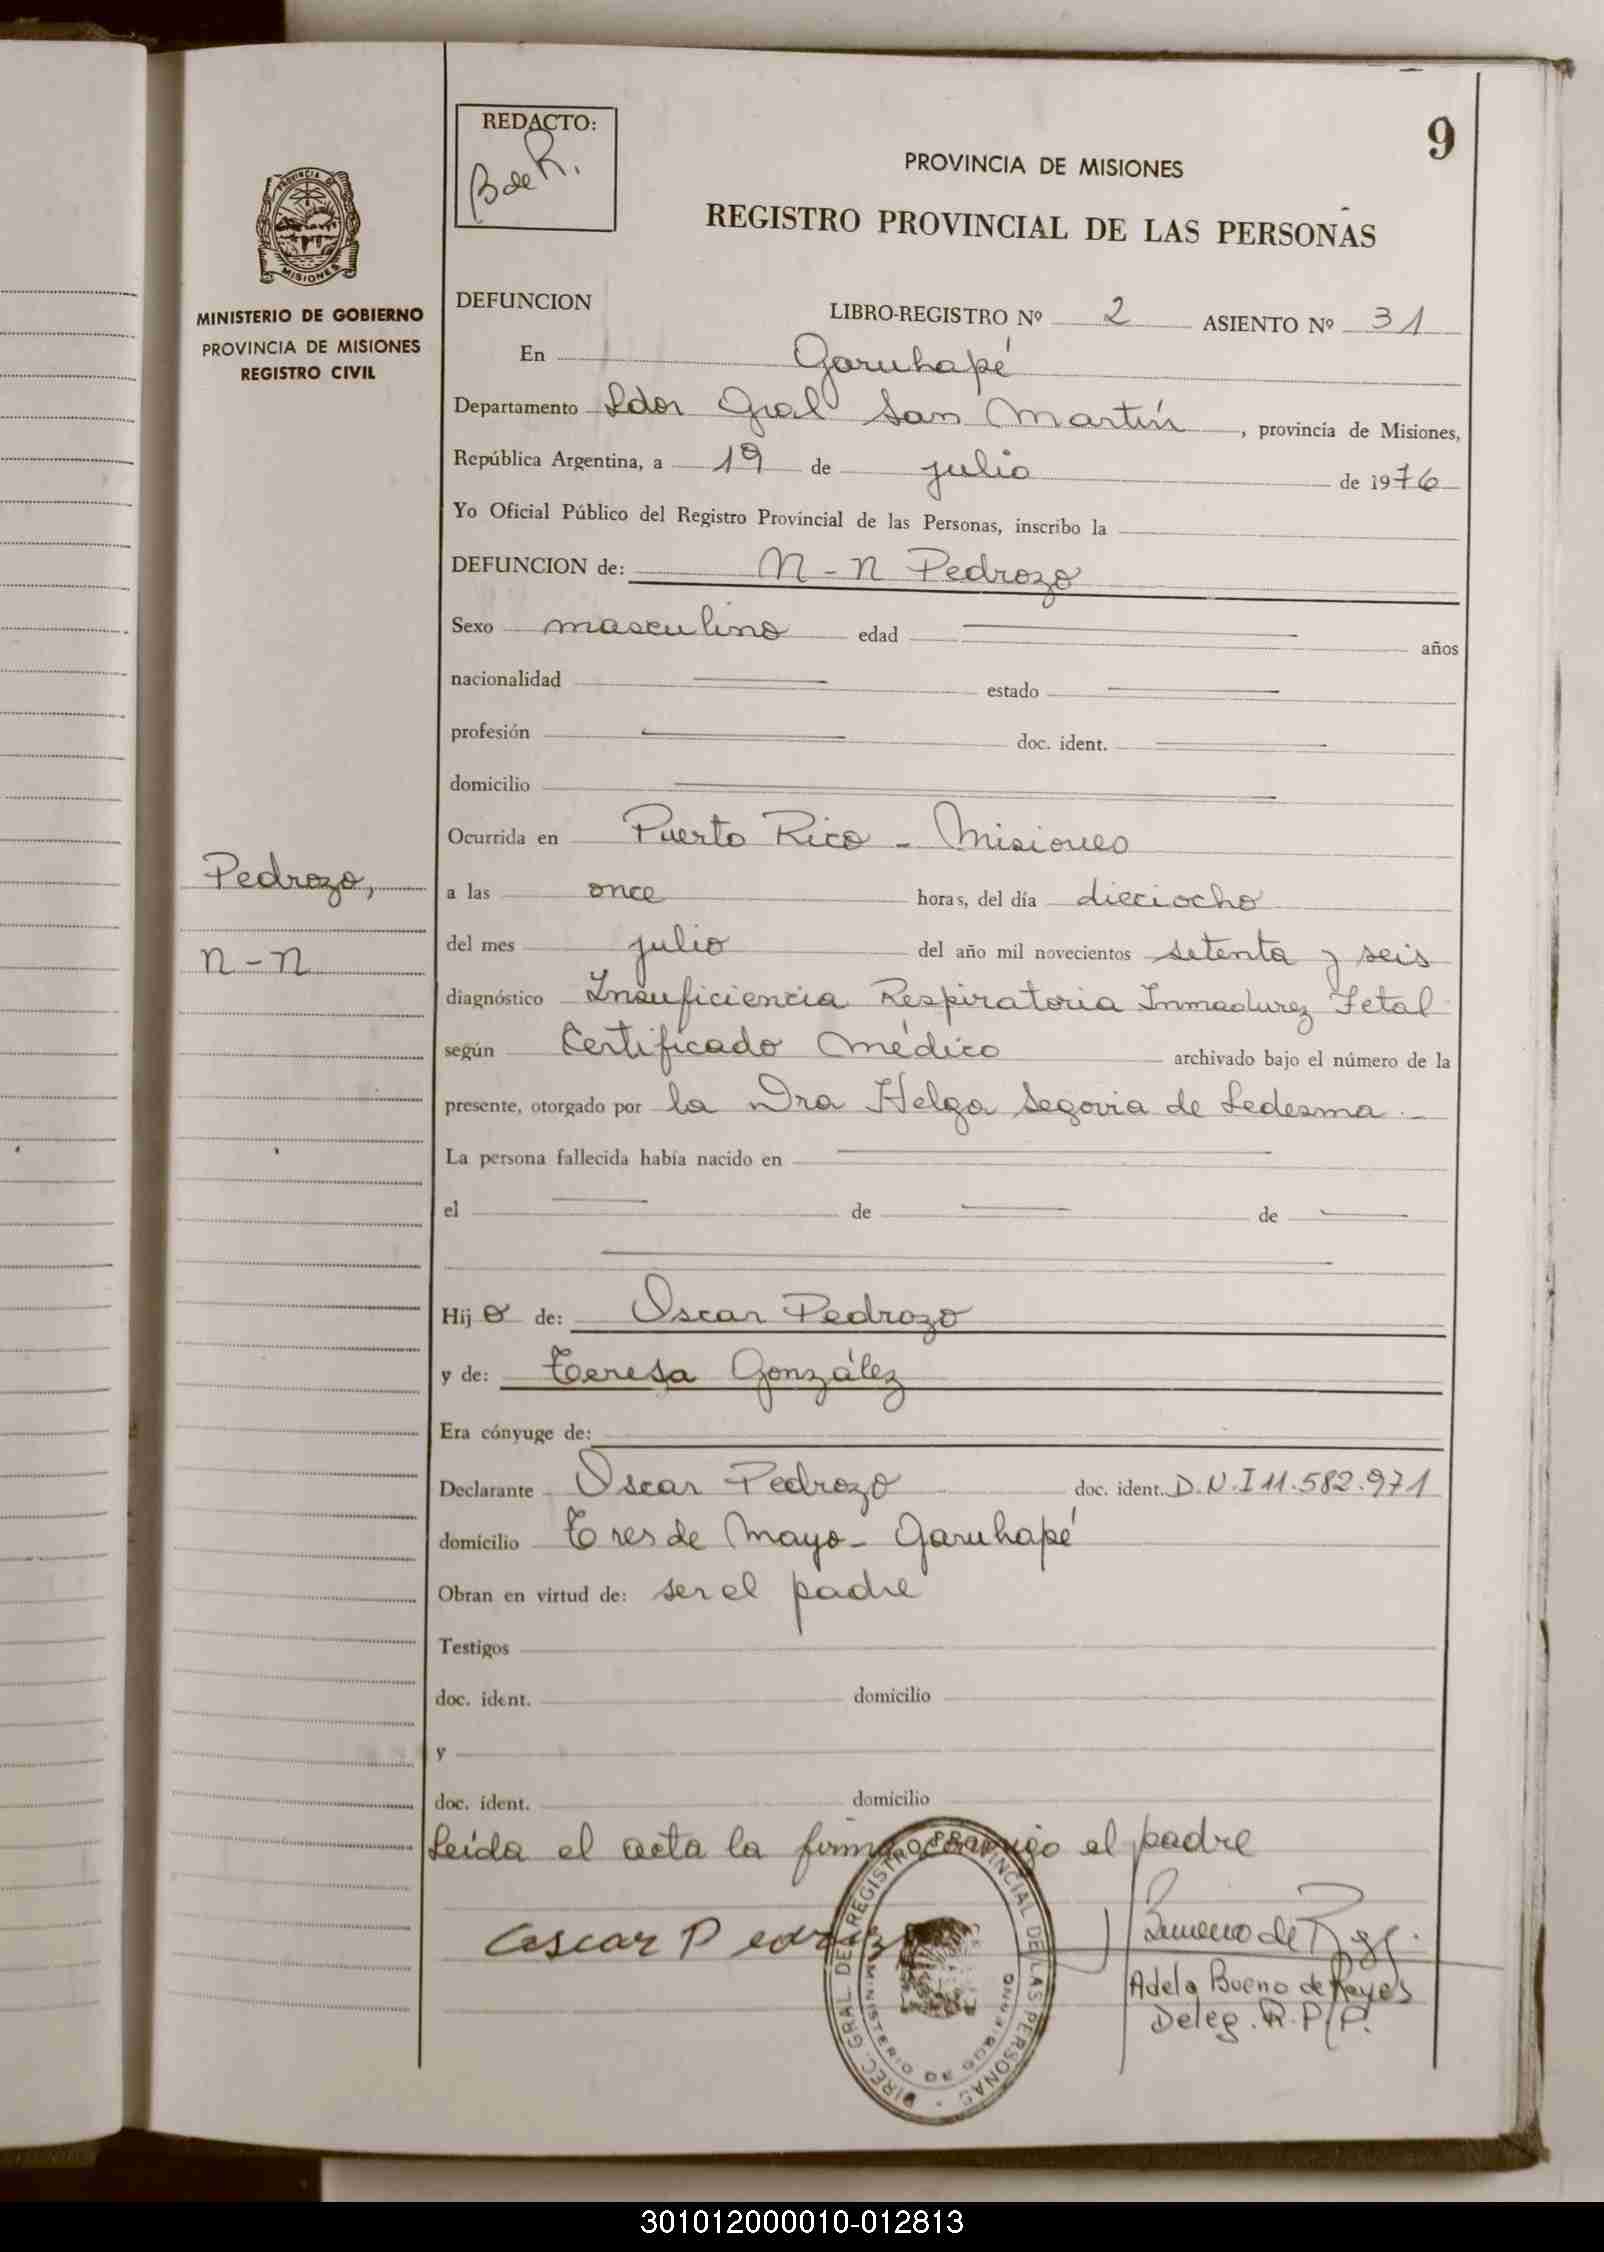 9
REDACTO:
B de R.
PROVINCIA DE MISIONES
REGISTRO PROVINCIAL DE LAS PERSONAS
PROVINCIA DE
MISIONES
MINISTERIO DE GOBIERNO
PROVINCIA DE MISIONES
REGISTRO CIVIL
DEFUNCION LIBRO-REGISTRO Nº 2 ASIENTO Nº 31
En Garuhapé
Departamento Ldor Gral San Martín, provincia de Misiones,
República Argentina, a 19 de julio de 1976
Yo Oficial Público del Registro Provincial de las Personas, inscribo la
DEFUNCION de: N-N Pedrozo
Sexo masculino edad años
nacionalidad estado
profesión doc. ident.
domicilio
Ocurrida en Puerto Rico - Misiones
Pedrozo,
a las once horas, del día dieciocho
n-n
del mes julio del año mil novecientos setenta y seis
diagnóstico Insuficiencia Respiratoria Inmadurez Fetal
según Certificado Médico archivado bajo el número de la
presente, otorgado por la Dra Helga Segovia de Ledesma.
La persona fallecida había nacido en
el de de
Hijo de: Oscar Pedrozo
y de: Teresa González
Era cónyuge de:
Declarante Oscar Pedrozo doc. ident. D.N.I 11.582.971
domicilio Tres de Mayo - Garuhapé
Obran en virtud de: ser el padre
Testigos
doc. ident. domicilio
y
doc. ident. domicilio
Leída el acta la firma conmigo el padre
Oscar Pedrozo
DIREC. GRAL. DEL REGISTRO PROVINCIAL DE LAS PERSONAS
MINISTERIO DE GOBIERNO
Bueno de
Adela Bueno de Reyes
Deleg. R.P.P.
301012000010-012813